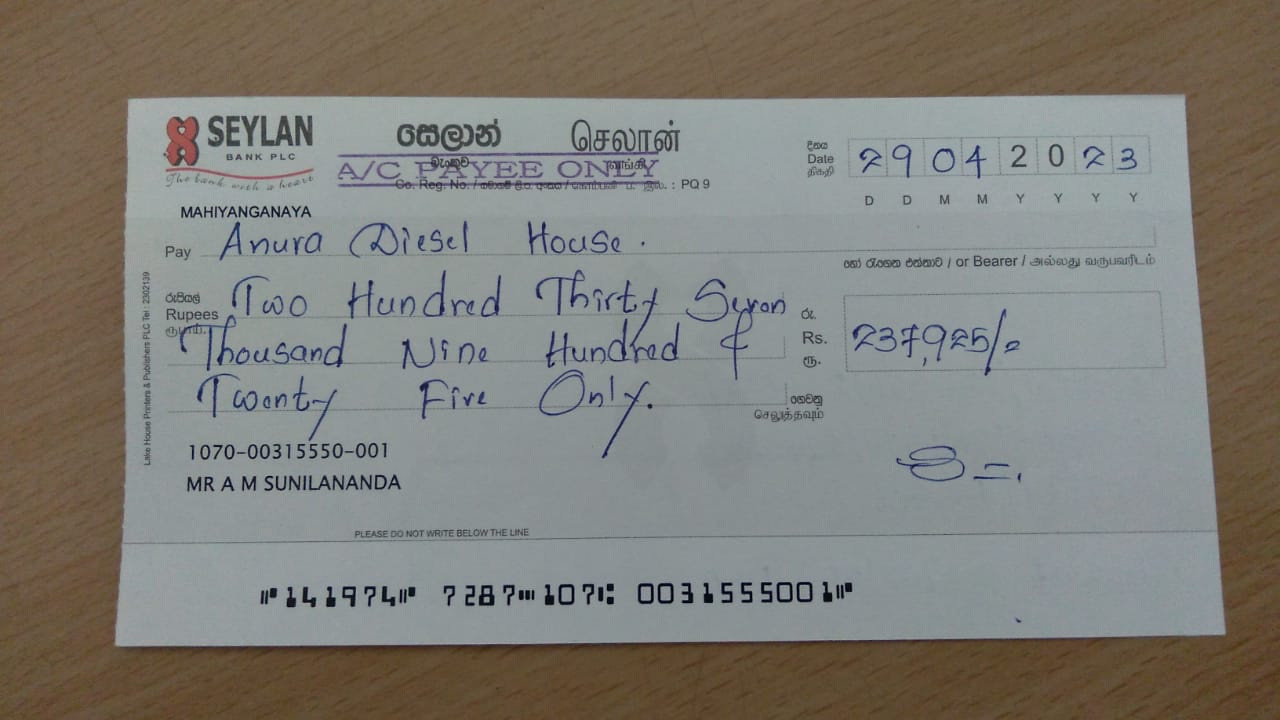 SEYLAN
BANK PLC
The bank with a heart
සෙලාන් செலான்
බැංකුව வங்கி
A/C PAYEE ONLY
Co. Reg. No. / : PQ 9
දිනය
Date
திகதி
29 04 2023
D D M M Y Y Y Y
MAHIYANGANAYA
Pay Anura Diesel House.
හෝ රැගෙන එන්නාට / or Bearer / அல்லது வருபவரிடம்
රුපියල්
Rupees
ரூபாய்
Two Hundred Thirty Seven
Thousand Nine Hundred &
Twenty Five Only.
රු.
Rs.
ரூ.
237,925/=
ගෙවනු
செலுத்தவும்
1070-00315550-001
MR A M SUNILANANDA
PLEASE DO NOT WRITE BELOW THE LINE
Lake House Printers & Publishers PLC Tel : 2302139
⑈141974⑈ 7287⑉107⑆ 0031555001⑈